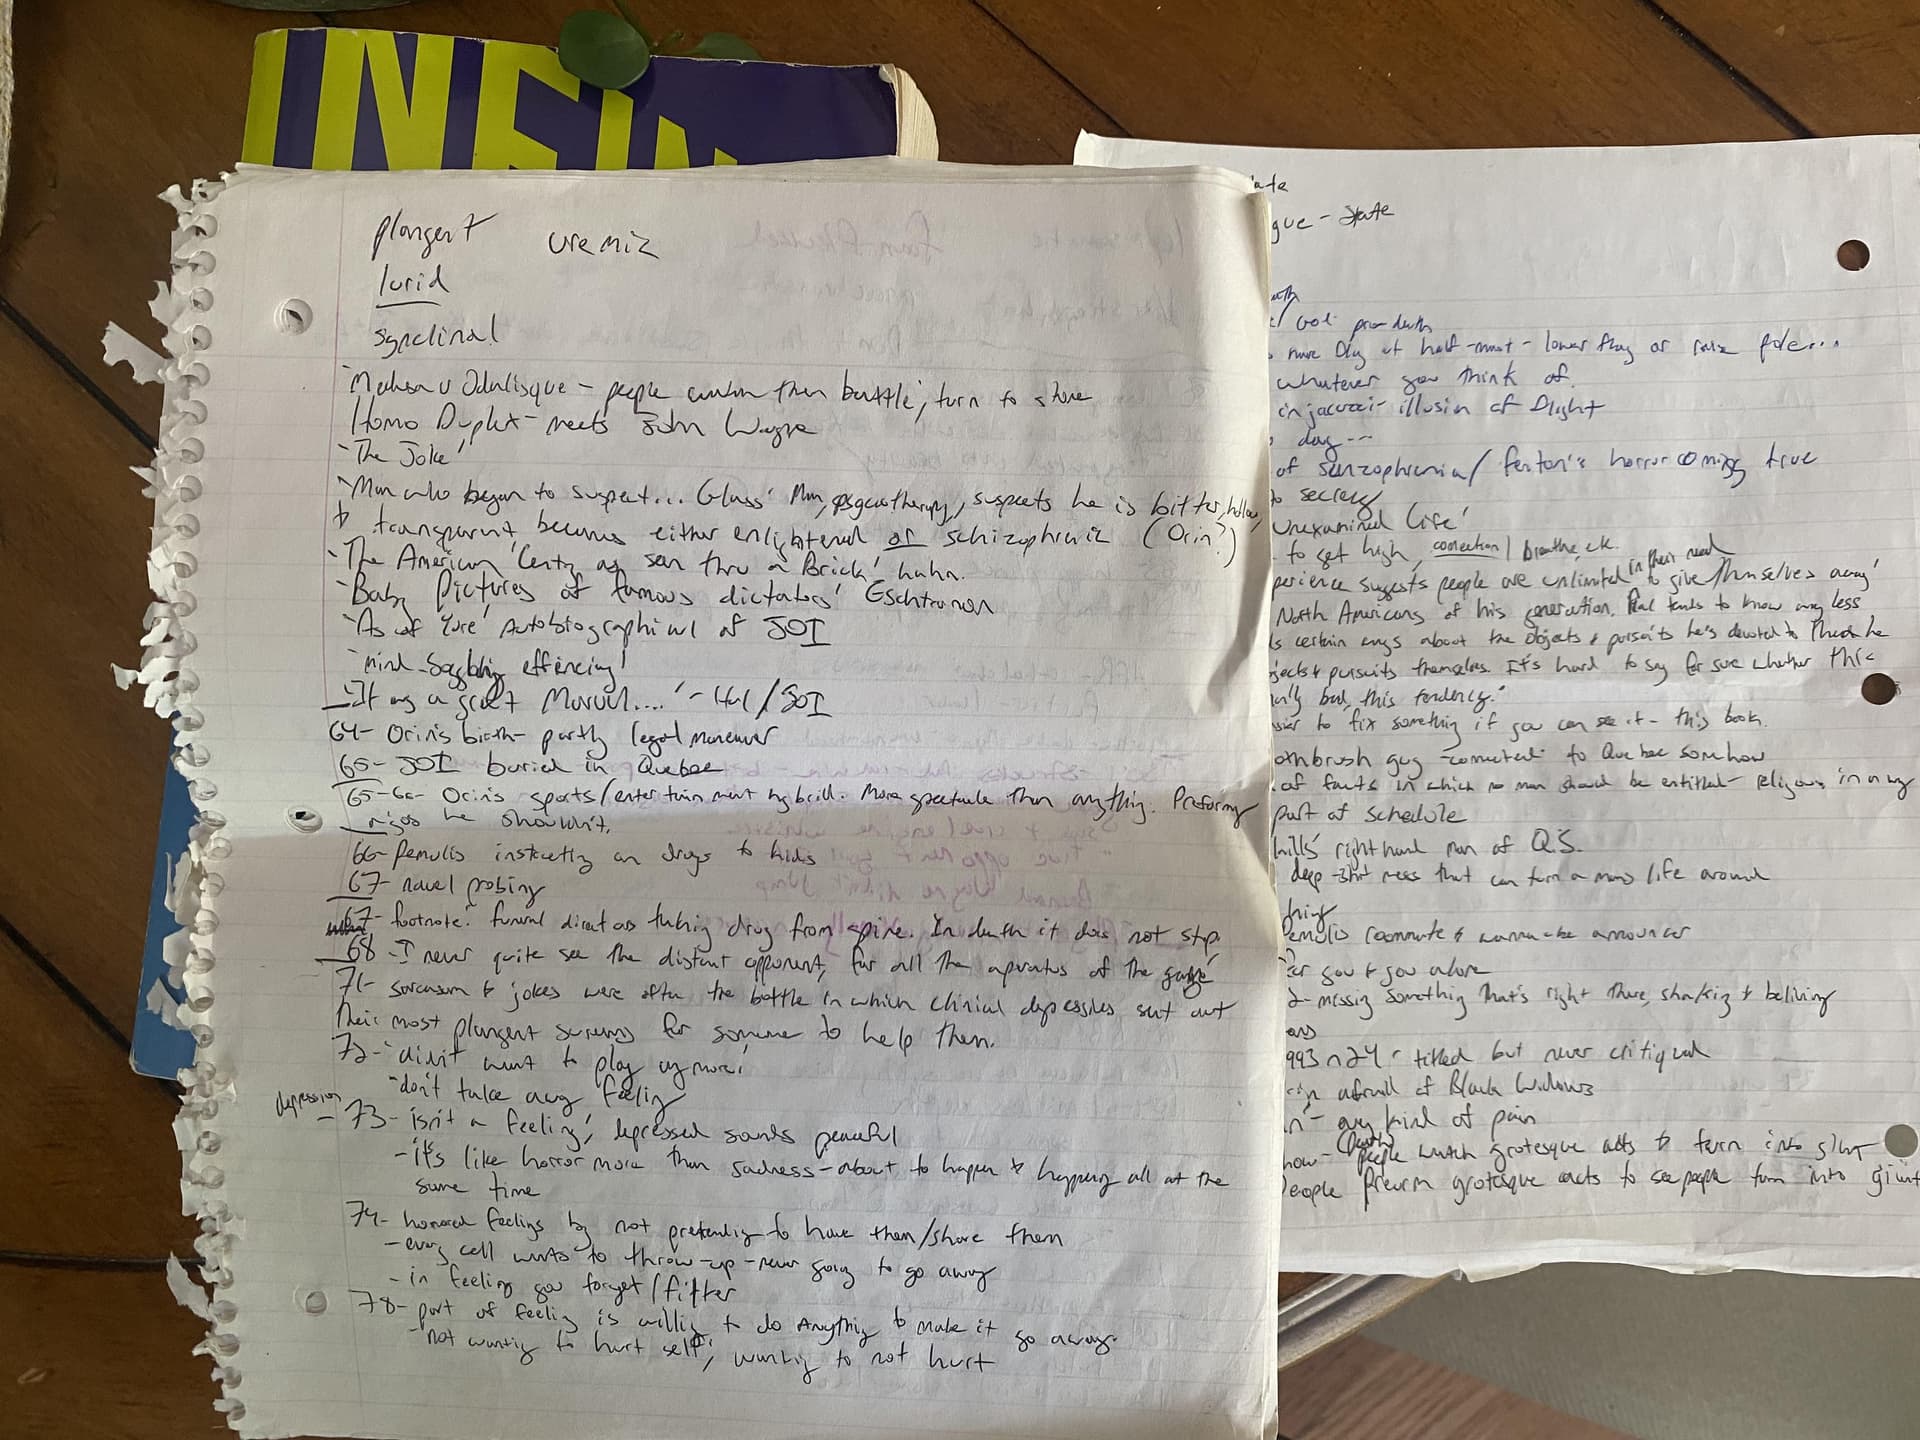 INFIN
plangent uremiz
lurid
synclinal
'Medusa v Odalisque - people watch them battle, turn to stone
Homo Duplex - meets John Wayne
'The Joke'
'Man who began to suspect... Glass' Man, psycotherapy, suspects he is bitter, hollow,
& transparent, becomes either enlightened or schizophrenic (Orin?)
'The American Century as seen thru a Brick' huhn.
'Baby Pictures of famous dictators' Eschtanon
'As of Yore' Autobiographical of JOI
'mind-boggling efficiency'
-'It was a great Marvel....' - Hal/JOI
64- Orin's birth - partly legal maneuver
65- JOI buried in Quebec
65-66- Orin's sports/entertainment hybrid. More spectacle than anything. Preforming
he shouldn't.
66- Pemulis instructing on drugs to kids
67- navel probing
67- footnote: funeral directors taking drug from spine. In death it does not stop.
68 -'I never quite see the distant opponent, for all the aparatus of the game'
71- sarcasm & jokes were often the bottle in which clinical depressives sent out
their most plangent screams for someone to help them.
72- 'didn't want to play anymore'
-don't take away feeling
depression - 73- isn't a feeling', depressed sounds peaceful
-it's like horror more than sadness - about to happen & happening all at the
same time
74- honored feelings by not pretending to have them/share them
-every cell wants to throw-up - never going to go away
- in feeling you forget/filter
78- part of feeling is willing to do Anything to make it go away.
-not wanting to hurt self, wanting to not hurt
ate
gue - state
god pro-death
more Day at half-mast - lower flag or raise pole...
whatever you think of.
in jacuzzi- illusion of flight
day --
of skizophrenia/ fenton's horror coming true
to secrecy
unexamined life'
- to get high, connection/ breathe, etc.
perience suggests people are unlimited in their need to give themselves away'
North Americans of his generation, Hal tends to know way less
certain ways about the objects & pursuits he's devoted to than he
jects & pursuits themselves. It's hard to say for sure whether this
bad, this tendency."
sier to fix something if you can see it - this book.
ombrush guy - connected to Quebec somhow
of faults in which no man should be entitled - religious in a way
part of schedule
hills' righthand man of Q.S.
deep-shit mess that can turn a mans life around
thing
emulis roommate & wanna-be announcer
for you & you alone
2- missing something that's right there, shaking & beliving
ans
993 n24 - titled but never critiqued
in afraid of Black Widows
n' - any kind of pain
how - (both) people watch grotesque acts & turn into giant
People preform grotesque acts to see people turn into giant